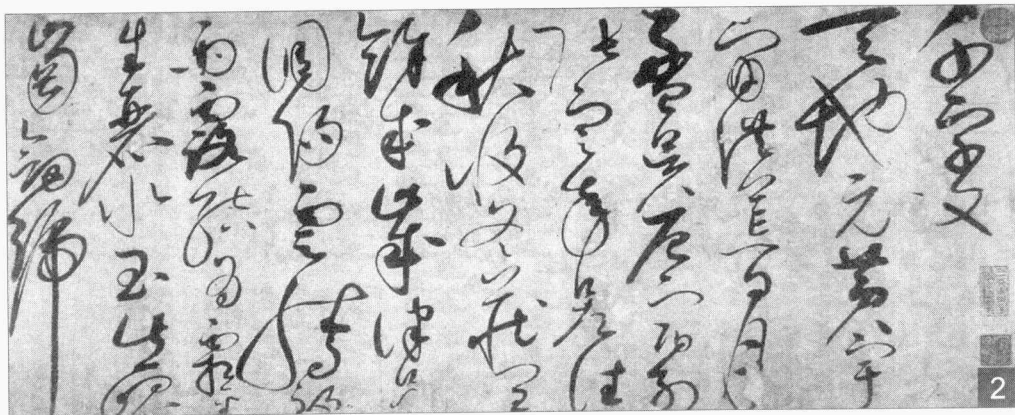 千字文
天地元黃宇
宙洪荒日月
盈昃辰宿列
張寒來暑往
秋收冬藏閏
餘成歲律呂
調陽雲騰致
雨露結為霜金
生麗水玉出崑
岡劍號
2